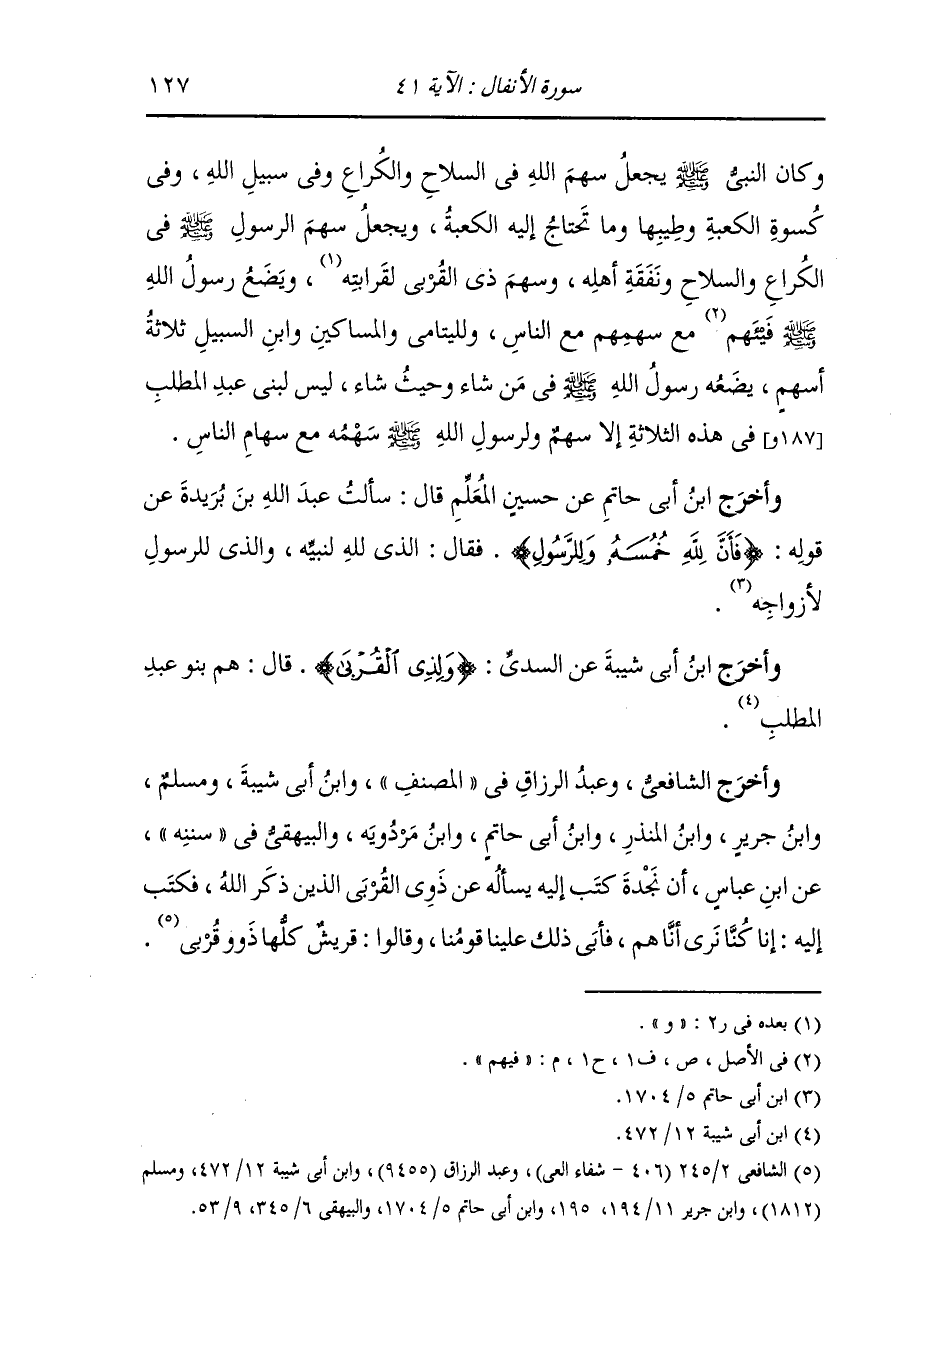 سورة الأنفال : الآية ٤١ ١٢٧
وكان النبىُّ ﷺ يجعلُ سهمَ اللهِ فى السلاحِ والكُراعِ وفى سبيلِ اللهِ ، وفى
كُسوةِ الكعبةِ وطِيبِها وما تَحتاجُ إليه الكعبةُ ، ويجعلُ سهمَ الرسولِ ﷺ فى
الكُراعِ والسلاحِ ونَفَقَةِ أهلِه ، وسهمَ ذى القُرْبى لقَرابتِه(١) ، ويَضَعُ رسولُ اللهِ
ﷺ فَيْئَهم(٢) مع سهمِهم مع الناسِ ، ولليتامى والمساكينِ وابنِ السبيلِ ثلاثةُ
أسهمٍ ، يضَعُه رسولُ اللهِ ﷺ فى مَن شاء وحيثُ شاء ، ليس لبنى عبدِ المطلبِ
[١٨٧و] فى هذه الثلاثةِ إلا سهمٌ ولرسولِ اللهِ ﷺ سَهْمُه مع سهامِ الناسِ .
وأخرَج ابنُ أبى حاتمٍ عن حسينٍ المُعَلِّمِ قال : سألتُ عبدَ اللهِ بنَ بُرَيدةَ عن
قولِه : ﴿فَأَنَّ لِلَّهِ خُمُسَهُۥ وَلِلرَّسُولِ﴾ . فقال : الذى للهِ لنبيِّه ، والذى للرسولِ
لأزواجِه(٣) .
وأخرَج ابنُ أبى شيبةَ عن السدىِّ : ﴿وَلِذِى ٱلْقُرْبَىٰ﴾ . قال : هم بنو عبدِ
المطلبِ(٤) .
وأخرَج الشافعىُّ ، وعبدُ الرزاقِ فى « المصنفِ » ، وابنُ أبى شيبةَ ، ومسلمٌ ،
وابنُ جريرٍ ، وابنُ المنذرِ ، وابنُ أبى حاتمٍ ، وابنُ مَرْدُويَه ، والبيهقىُّ فى « سننِه » ،
عن ابنِ عباسٍ ، أن نَجْدةَ كتَب إليه يسألُه عن ذَوِى القُرْبَى الذين ذكَر اللهُ ، فكتَب
إليه : إنا كُنَّا نَرى أنَّا هم ، فأبَى ذلك علينا قومُنا ، وقالوا : قريشٌ كلُّها ذَوو قُرْبى(٥) .
(١) بعده فى ر٢ : « و » .
(٢) فى الأصل ، ص ، ف١ ، ح١ ، م : « فيهم » .
(٣) ابن أبى حاتم ٥/ ١٧٠٤.
(٤) ابن أبى شيبة ١٢/ ٤٧٢.
(٥) الشافعى ٢٤٥/٢ (٤٠٦ - شفاء العى)، وعبد الرزاق (٩٤٥٥)، وابن أبى شيبة ١٢/ ٤٧٢، ومسلم
(١٨١٢)، وابن جرير ١١/ ١٩٤، ١٩٥، وابن أبى حاتم ٥/ ١٧٠٤، والبيهقى ٦/ ٣٤٥، ٩/ ٥٣.